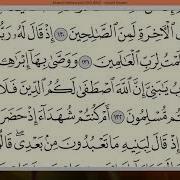 الْأَخِرَةِ لَمِنَ الصَّٰلِحِينَ ١٣٠ إِذْ قَالَ لَهُ رَبُّ
مْتُ لِرَبِّ الْعَٰلَمِينَ ١٣١ وَوَصَّىٰ بِهَا إِبْرَٰهِ
بُ يَٰبَنِيَّ إِنَّ اللَّهَ اصْطَفَىٰ لَكُمُ الدِّينَ فَلَا
م مُّسْلِمُونَ ١٣٢ أَمْ كُنتُمْ شُهَدَآءَ إِذْ حَضَرَ
إِذْ قَالَ لِبَنِيهِ مَا تَعْبُدُونَ مِنۢ بَعْدِي قَا